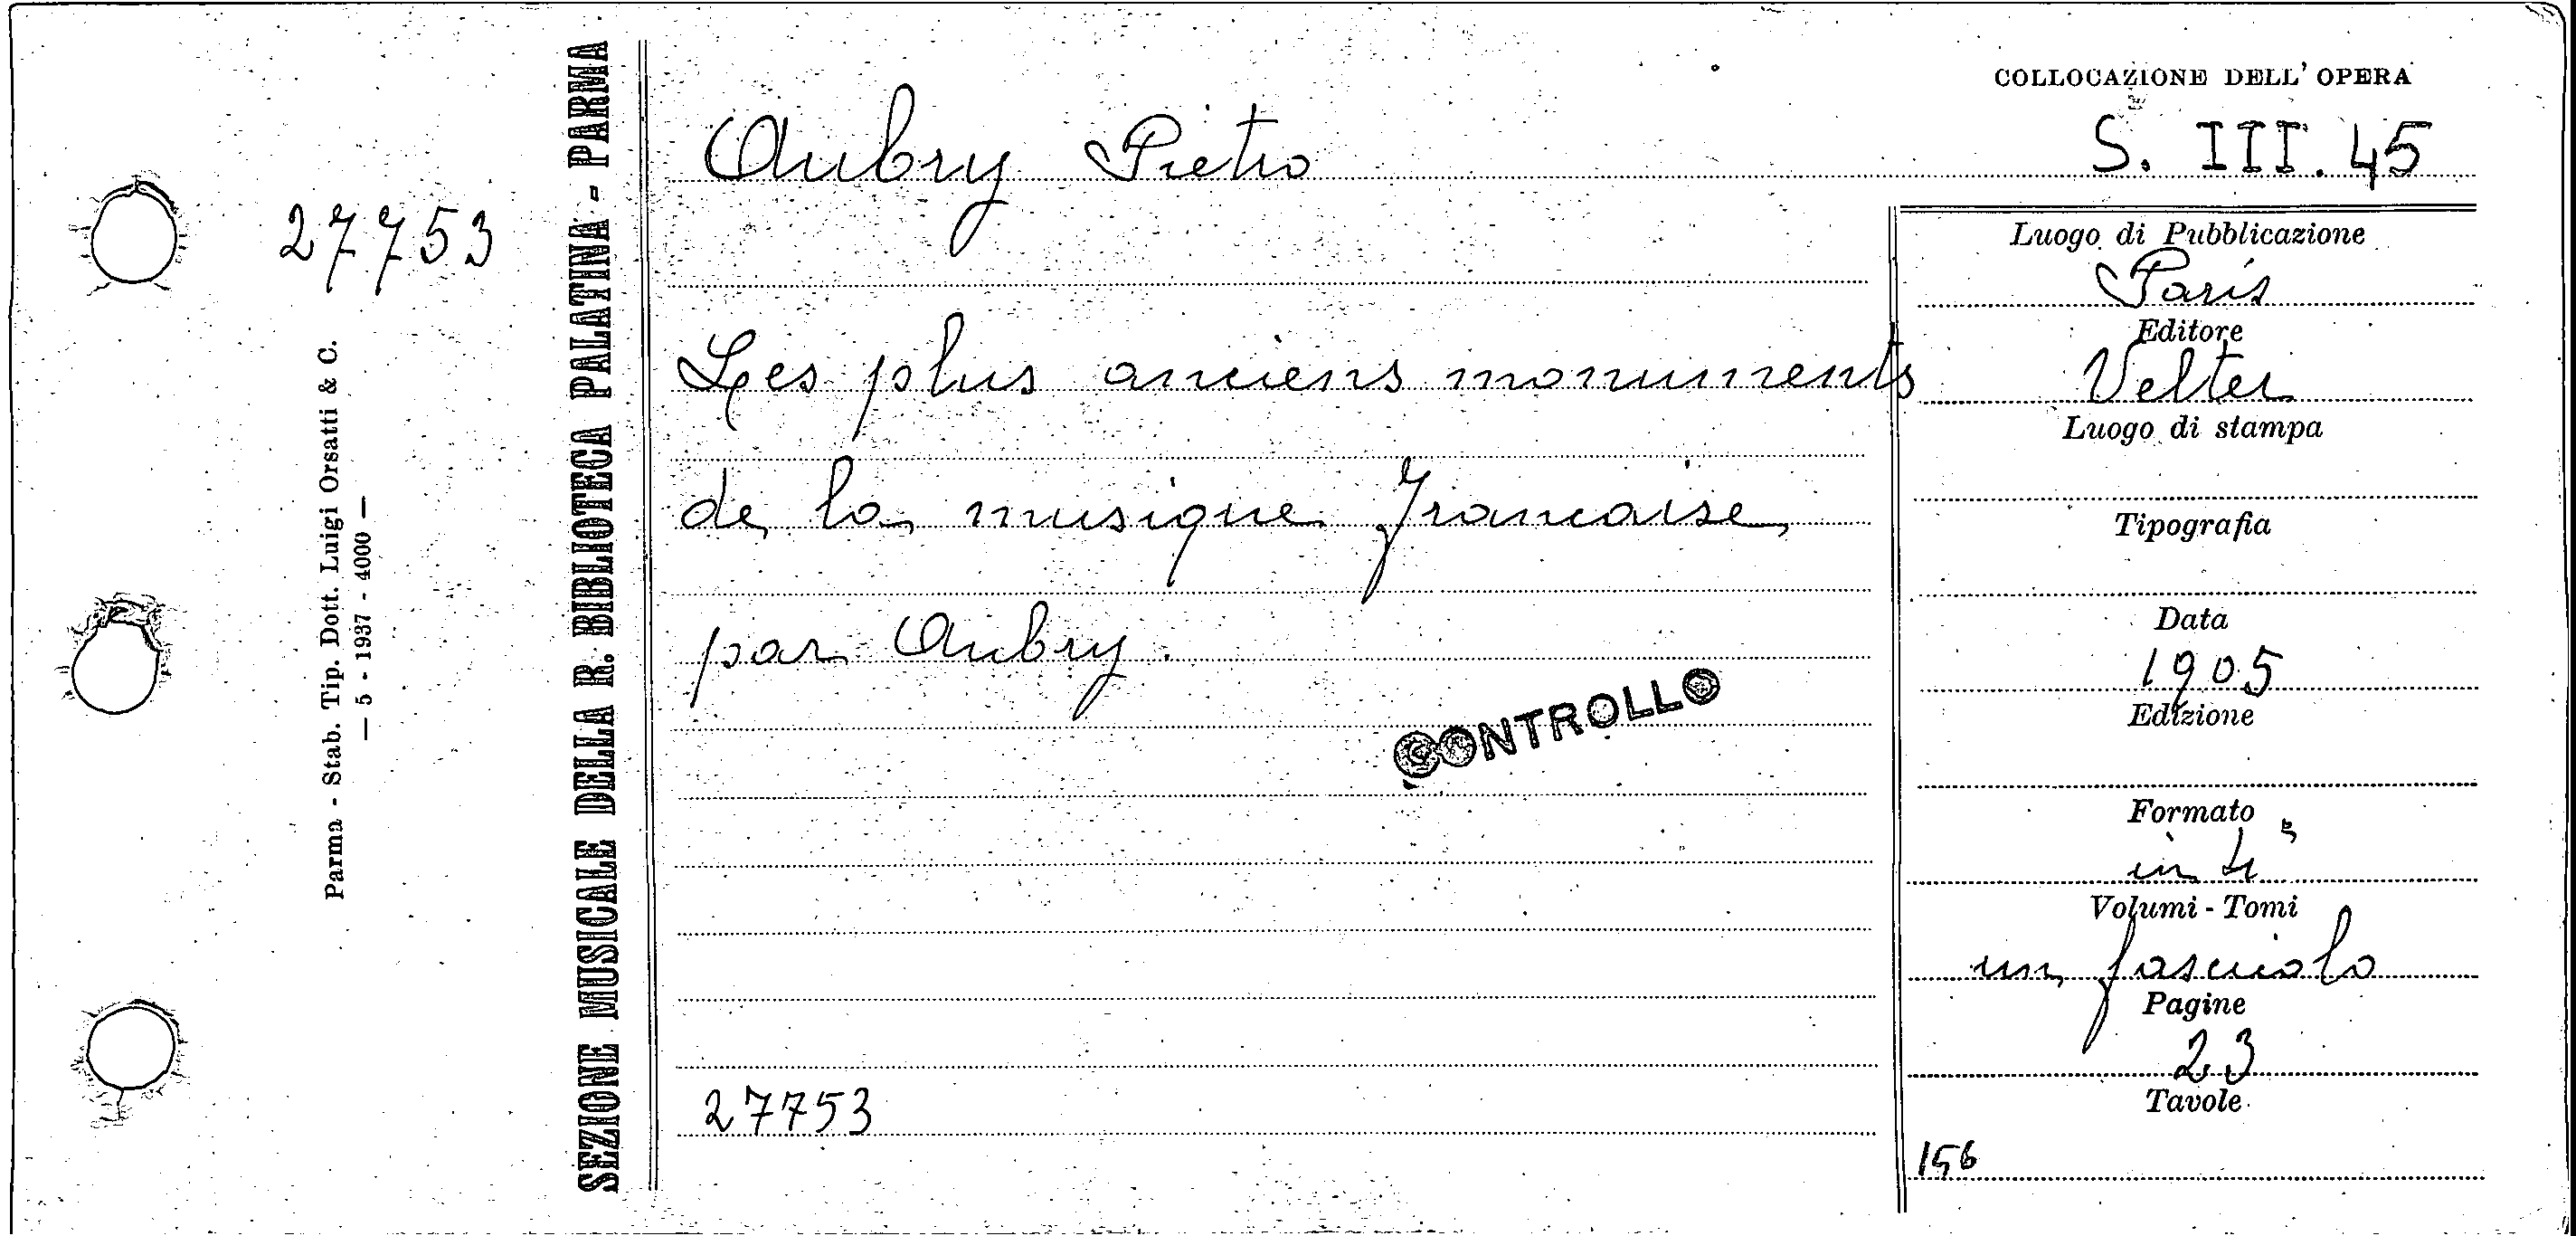 COLLOCAZIONE DELL' OPERA
S. III. 45
27753
Parma - Stab. Tip. Dott. Luigi Orsatti & C.
— 5 - 1937 - 4000 —
SEZIONE MUSICALE DELLA R. BIBLIOTECA PALATINA - PARMA
Aubry Pietro
Les plus anciens monuments
de la musique francaise
par Aubry.
CONTROLLO
27753
Luogo di Pubblicazione
Paris
Editore
Velter
Luogo di stampa
Tipografia
Data
1905
Edizione
Formato
in 4°
Volumi - Tomi
un fascicolo
Pagine
23
Tavole
156